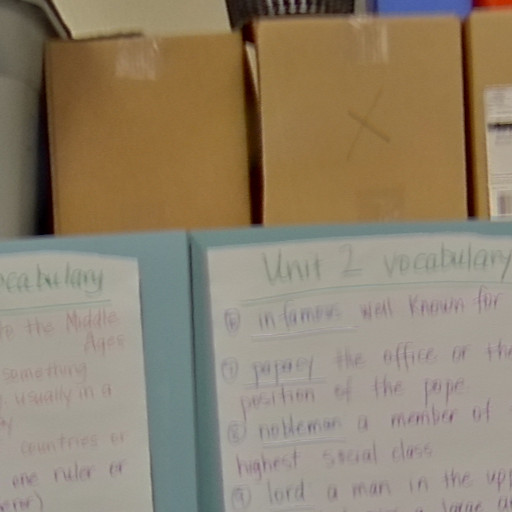 ocabulary
to the Middle
Ages
something
usually in a
countries or
one ruler or
Unit 2 vocabulary
⑥ infamous well known for
⑦ papacy the office or the
position of the pope
⑧ nobleman a member of
highest social class
⑨ lord a man in the upp
a large